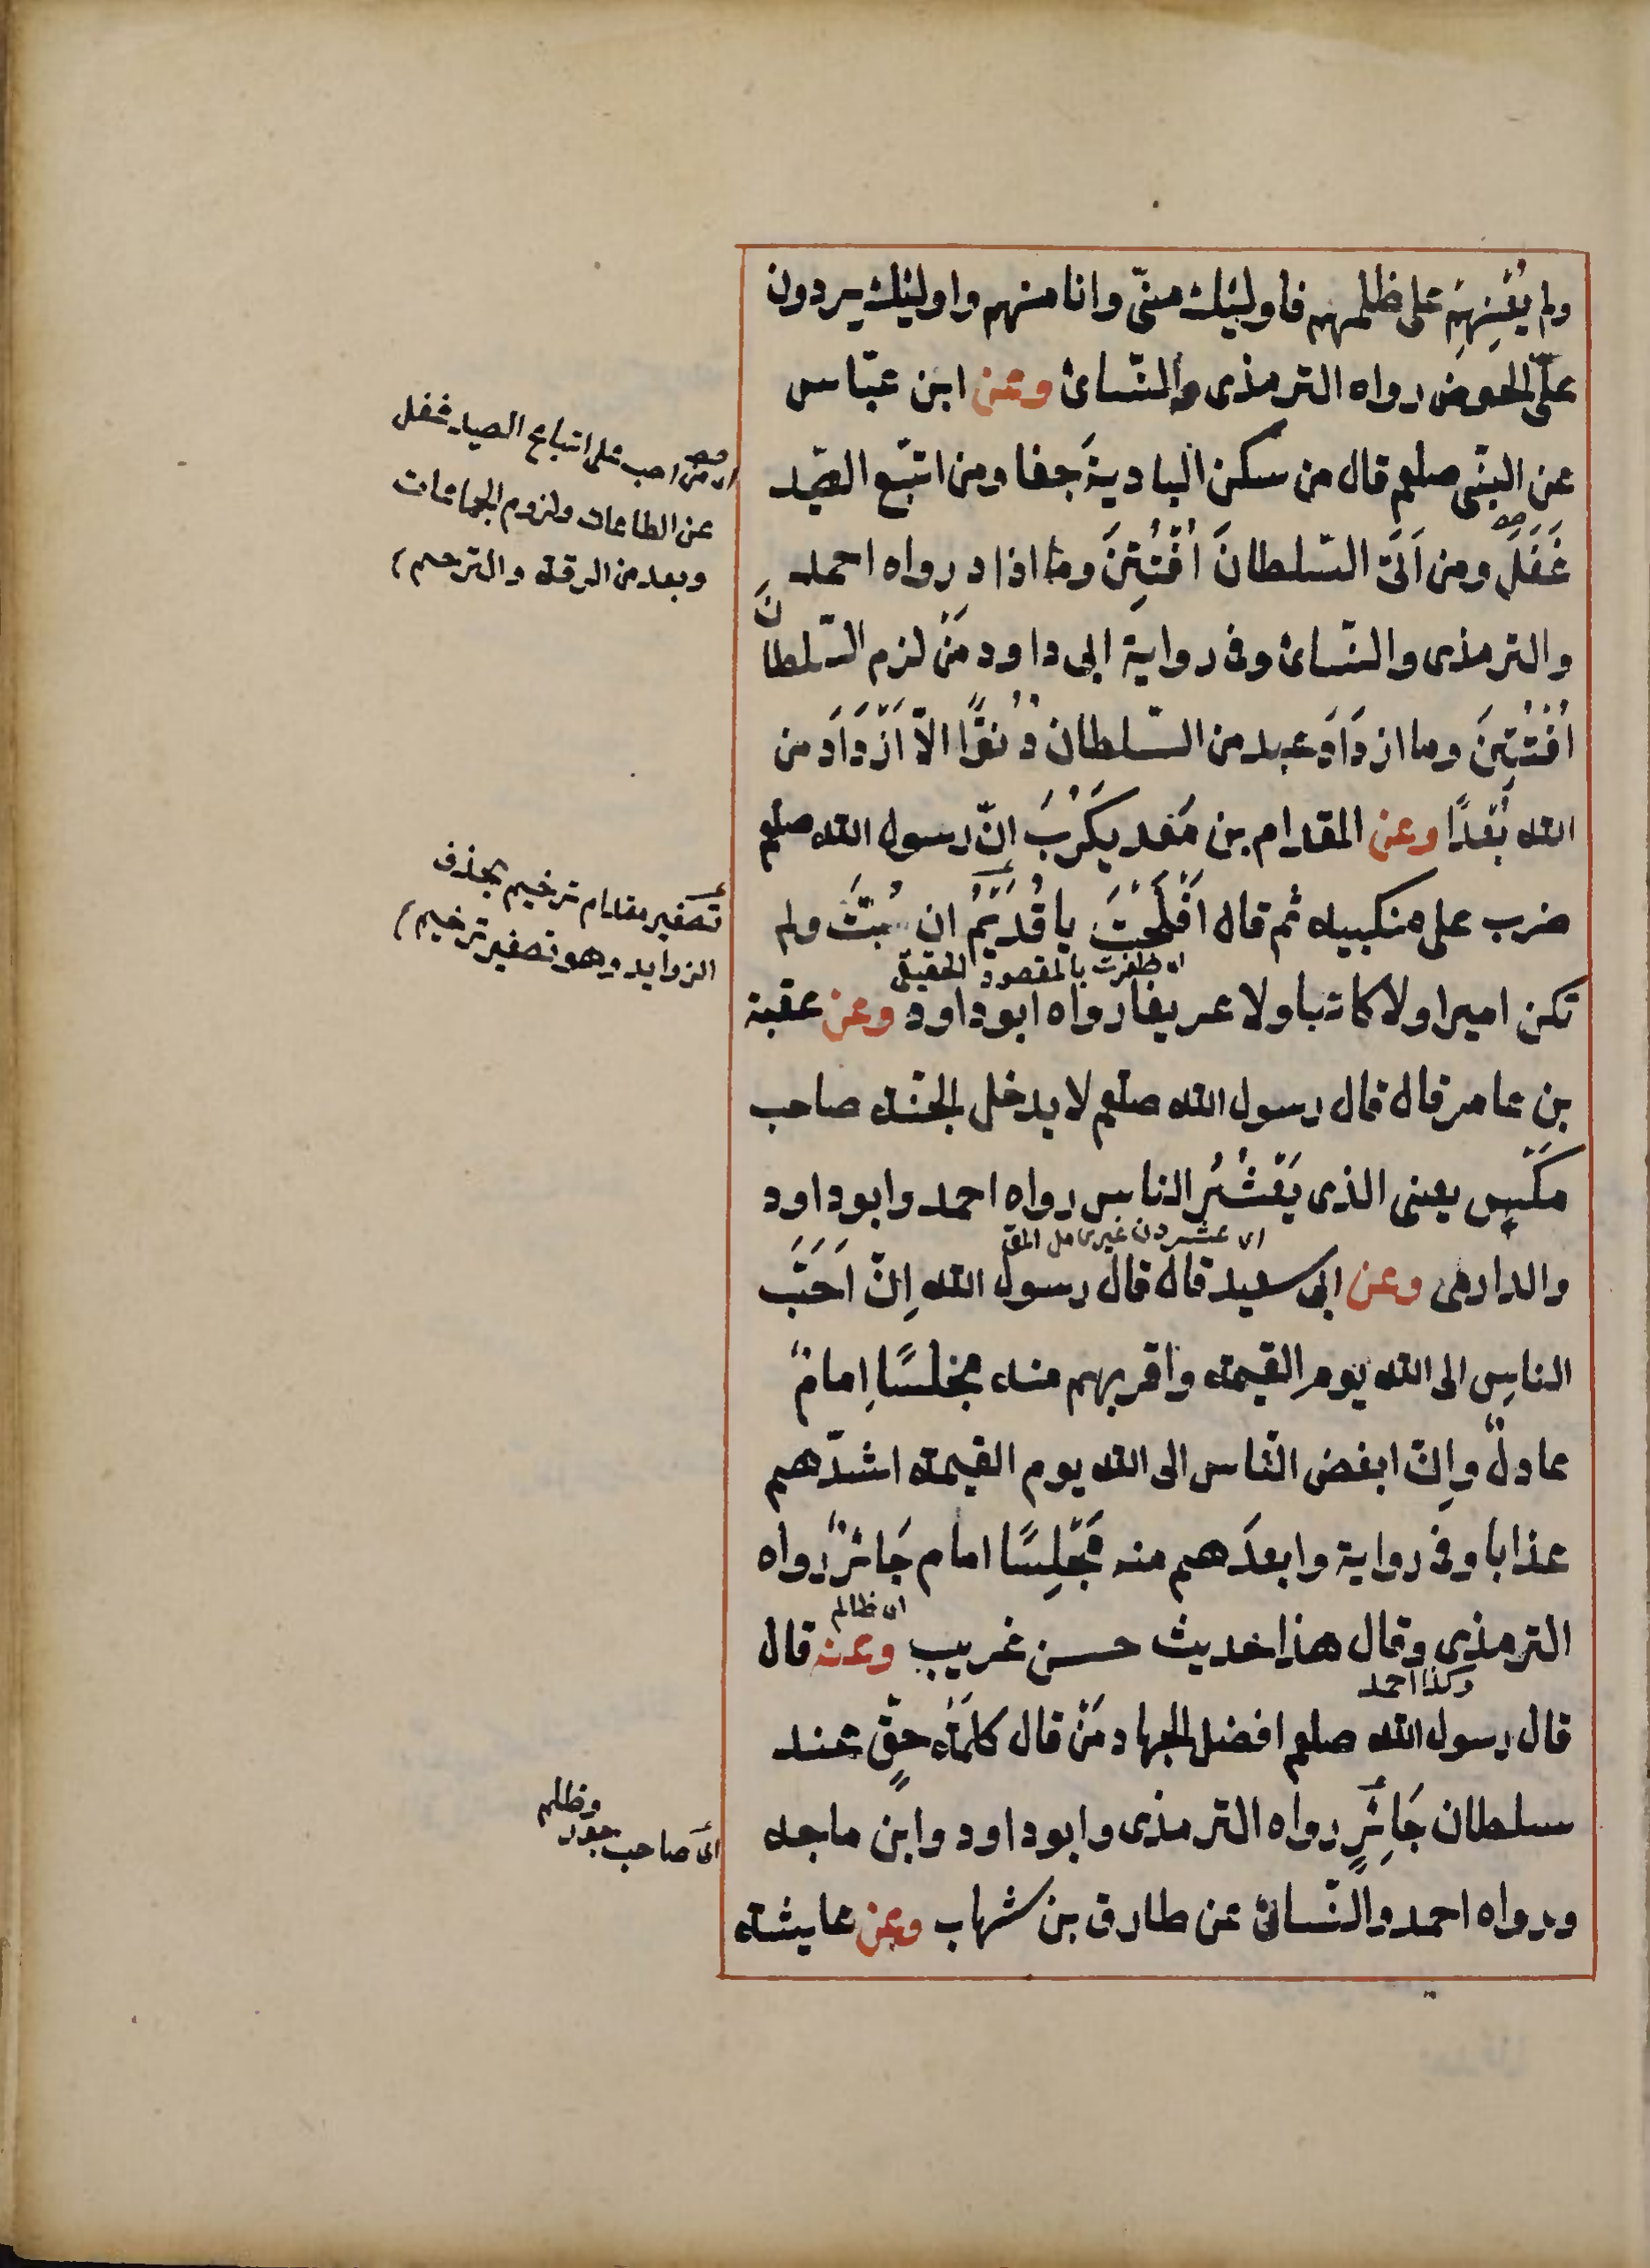 ولم يُعِنهم على ظلمهم فاولئك منّى وانا منهم واولئك يردون
علىّ الحوض رواه الترمذى والنّسائ وعن ابن عبّاس
عن النبّى صلعم قال من سكن البادية جفا ومن اتبّع الصّيد
غَفَلَ ومن اَتَى السّلطانَ اُفْتُتِنَ وما اذا د رواه احمد
والترمذى والنّسائ وفى رواية ابى داود مَنْ لزم السّلطانَ
اُفْتُتِنَ وما ازدَادَ عبد من السّلطان دُنوًّا الاّ ازْدَادَ من
الله بُعْدًا وعن المقدام بن مَعْديكَرْبَ انّ رسول الله صلعم
ضرب على منكبيه ثم قال اَفْلَحْتَ ياقُدَيْمُ ان مُتَّ ولم
اى ظفرت بالمقصود الحقيقى
تكن اميرا ولا كاتبا ولا عريفا رواه ابوداود وعن عقبة
بن عامر قال قال رسول الله صلعم لا يدخل الجنّة صاحب
مَكْسٍ يعنى الذى يَعْشُرُ الناس رواه احمد وابوداود
والدارمى وعن ابى سعيد قال قال رسول الله اِنّ اَحَبَّ
الناسِ الى الله يوم القيمة واقربهم منه مجلسًا اِمامٌ
عادلٌ واِنّ ابغض النّاس الى الله يوم القيمة اشدّهم
عذابًا وفى رواية وابعدَهم منه مَجْلِسًا امام جَائرٌ رواه
اى ظالم
الترمذى وقال هذا حديث حسن غريب وعنه قال
وكذا احمد
قال رسول الله صلعم افضل الجهاد مَنْ قال كلمةَ حقٍّ عند
سلطان جَائِرٍ رواه الترمذى وابوداود وابن ماجه
ورواه احمد والنّسائ عن طارق بن شهاب وعن عايشة
من احب على اتباع الصيد غفل
عن الطاعات ولزوم الجماعات
وبعد من الرقة والترحم
تصغير مقدام ترخيم بحذف
الزوايد وهو تصغير ترخيم
اى صاحب جور وظلم